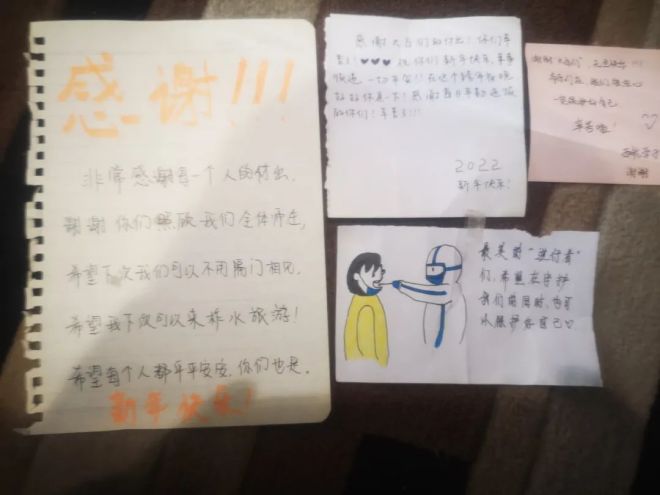 感谢!!!
非常感谢每一个人的付出,
谢谢你们照顾我们全体师生,
希望下次我们可以不用隔门相见,
希望我下次可以来柞水旅游!
希望每个人都平平安安,你们也是。
新年快乐!
感谢大白们的付出!你们辛
苦了!♥♥♥祝你们新年快乐,军事
快递 一切平安!!在这个跨年夜晚
好好休息一下!感谢每日辛勤送饭
的你们!辛苦了!!!
2022
新年快乐!
谢谢"大白们",元旦快乐!!!
有你们在,我们很安心
一定保护好自己
辛苦啦!
谢谢
最美的"逆行者"
们,希望在守护
我们的同时,也可
以照护好自己♡